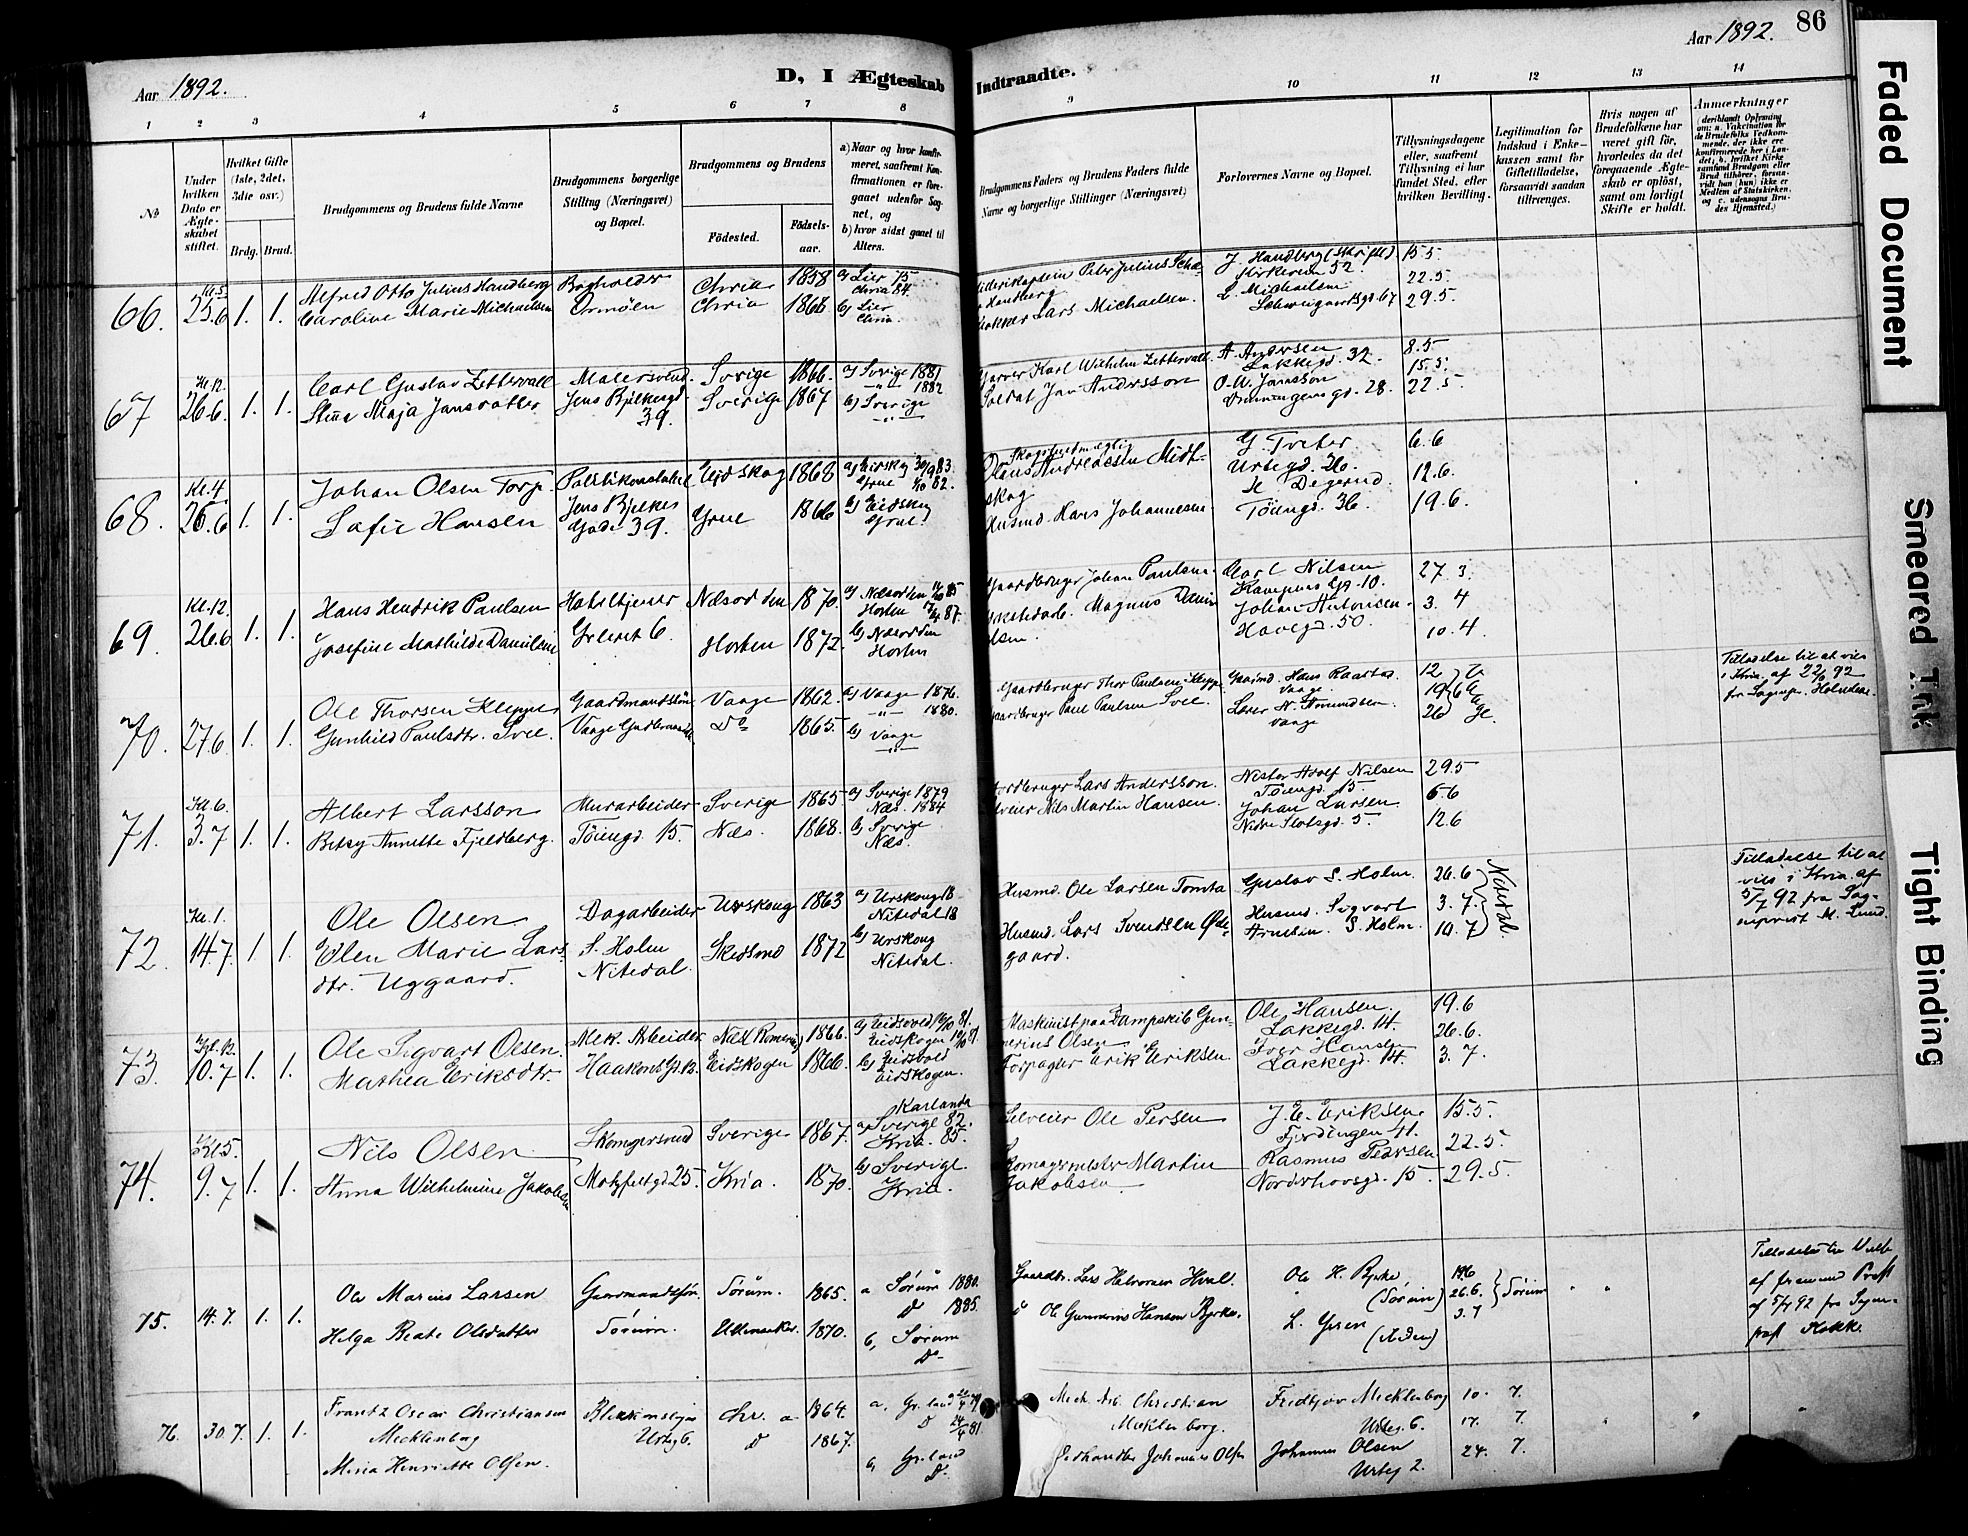 Aar 1892.
D, I Ægteskab Indtraadte.
Aar 1892. 86
1 2 3 4 5 6 7 8 9 10 11 12 13 14
No
Under hvilken Dato er Ægteskabet stiftet.
Hvilket Gifte (1ste, 2det, 3die osv.)
Brdg. Brud.
Brudgommens og Brudens fulde Navne
Brudgommens borgerlige Stilling (Næringsvei) og Bopæl.
Brudgommens og Brudens
Fødested.
Fødselsaar.
a) Naar og hvor konfirmeret, saafremt Konfirmationen er foregaaet udenfor Sognet, og
b) hvor sidst gaaet til Alters.
Brudgommens Faders og Brudens Faders fulde Navne og borgerlige Stillinger (Næringsvei)
Forlovernes Navne og Bopæl.
Tillysningsdagene eller, saafremt Tillysning ei har fundet Sted, efter hvilken Bevilling.
Legitimation for Indskud i Enkekassen samt for Giftetilladelse, forsaavidt saadan tiltrænges.
Hvis nogen af Brudefolkene har været gift før, hvorledes da det foregaaende Ægteskab er opløst, samt om lovligt Skifte er holdt.
Anmærkninger
(deriblandt Oplysning om: a. Vakcination for de Brudefolks Vedkommende, der ikke ere konfirmerede her i Landet; b. hvilket Kirkesamfund Brudgom eller Brud tilhører, forsavidt han (hun) ikke er Medlem af Statskirken, og c. udensogns Brudes Hjemsted.)
66. Kl. 5 25.6 1. 1. Alfred Otto Julius Handberg Bogholder Chria 1858 a) Lier 75 Peter Julius J. Handberg 15.5
Caroline Marie Michaelsen Ormøen Chria 1868 Chria 84. b) Lier Chria. Lars Michaelsen. L. Michaelsen 22.5 29.5.
67 Kl. 12. 26.6. 1. 1. Carl Gustav Zettervall Malersvend. Sverige 1866. a) Sverige 1881 Karl Wilhelm Zettervall. A. Andersen Lakkegd. 32. 8.5
Stina Maja Jansdotter Jens Bjelkesgd. 39. Sverige 1867 1882 b) Sverige Soldat Jan Andersson O. W. Jansson gd. 28. 15.5. 22.5.
68. Kl. 4 26.6 1. 1. Johan Olsen Torp. Politikonstabel Eidskog 1868 a) Eidskog 30/9 83. Olaus Andreassen Midtskog G. Tveter Urtegd. 26. 6.6
Safie Hansen Jens Bjelkes Gade 39. Grue 1866 Grue 82. b) Eidskog Grue. Husmd. Hans Johannesen H. Degerud. Töiengd. 36. 12.6. 19.6.
69. Kl. 12. 26.6 1. 1. Hans Hendrik Paulsen Hoteltjener Næsodden 1870. a) Næsodden 85 Gaardbruger Johan Paulsen. Carl Nilsen Kampens Gd. 10. 27 3.
Josefine Mathilde Danielsen Grleret 6. Horten 1872. Horten 87. b) Næsodden Horten Magnus Danielsen. Johan Antonsen. Havegd. 50. 3. 4 10.4.
70. 27.6. 1. 1. Ole Thorsen Kleppe Gaardmandssøn Vaage 1862. a) Vaage 1876. Gaardbruger Thor Paulsen Kleppe Gaardmd. Hans Raastad Vaage. 12
Gunhild Paulsdtr. Svee. Vaage Gudbrandsd. Do 1865. 1880. b) Vaage Gaardbruger Paul Paulsen Svee. Lærer N. Amundsen. Vaage 19 6 26
Tilladelse til at vies i Kria. af 22/6 92 fra Sognepr.
71. Kl. 6. 3.7 1. 1. Albert Larsson Murarbeider Sverige 1865 a) Sverige 1879 Jordbruger Lars Andersson. Nestor Adolf Nilsen Töiengd. 15. 29.5
Betsy Annette Fjeldberg. Töiengd. 15. Næs. 1868. Næs. 1884 b) Sverige Næs. Nils Martin Hansen. Johan Larsen Nedre Slotsgd. 5. 6.6 12.6
72. Kl. 1. 14.7. 1. 1. Ole Olsen Dagarbeider Urskoug 1863 a) Urskoug 18 Nitedal 18 Husmd. Ole Larsen Tomta Gustav S. Holm. 26.6 Nitedal.
Olen Marie Larsdtr. Uggaard. S. Holm Nitedal. Skedsmo 1872 b) Urskoug Nitedal. Husmd. Lars Svendsen Ødegaard. Husmd. Sigvart Arnesen. S. Holm. 3. 7. 10. 7
Tilladelse til at vies i Kria. af 5/7 92 fra Sogneprest M. Lund.
73. Kl. 12. 10.7 1. 1. Ole Sigvart Olsen. Mek. Arbeider Næs Romerike 1866. a) Eidsvold 81. Maskinist paa Dampskib Gunerius Olsen Ole Hansen. Lakkegd. 14. 19.6
Mathea Eriksdtr. Haakons Gd. 12. Eidskogen 1866. Eidskogen 81. b) Eidsvold Eidskogen. Torpager Erik Eriksen. Iver Hansen Lakkegd. 14. 26.6. 3. 7.
74. Kl. 5. 9.7 1. 1. Nils Olsen Skomagersvend Sverige 1867. a) Karlanda Sverige 82. Kria. 85. Selveier Ole Persen J. E. Eriksen. Fjerdingen 41. 15.5.
Anna Wilhelmine Jakobsen Motzfeltgd. 25. Kria. 1870. b) Sverige. Kria. Skomagermester Martin Jakobsen Rasmus Pedersen Nordrehovsgd. 15. 22.5. 29.5.
75. 14.7. 1. 1. Ole Marius Larsen Gaardmandssøn. Sørum. 1865. a Sørum 1880. Gaardbr. Lars Halvorsen Hval. Ole H. Bjerke (Sørum) 19.6 26.6. 3.7 Sørum
Helga Beate Olsdatter Sørum. Ullensaker. 1870. D 1885. b, Sørum Do D Ole Gunnerius Hansen Bjerke.
Tilladelse til Vielse af fremmed Prest af 5/7 92 fra Sogneprest
76. 30.7. 1. 1. Frantz Oscar Christiansen Mecklenborg Urteg 6. Chr. a 1864. a, Gr.land Mech. Arb. Christian Mecklenborg. Fredtjov Mecklenborg Urteg. 6. 10. 7.
Maria Henriette Olsen. D 1867. D 24/4 81. b, Gr.land D. Johannes Olsen Johannes Olsen Urteg 2. 17. 7. 24. 7.
Faded Document
Smeared Ink
Tight Binding